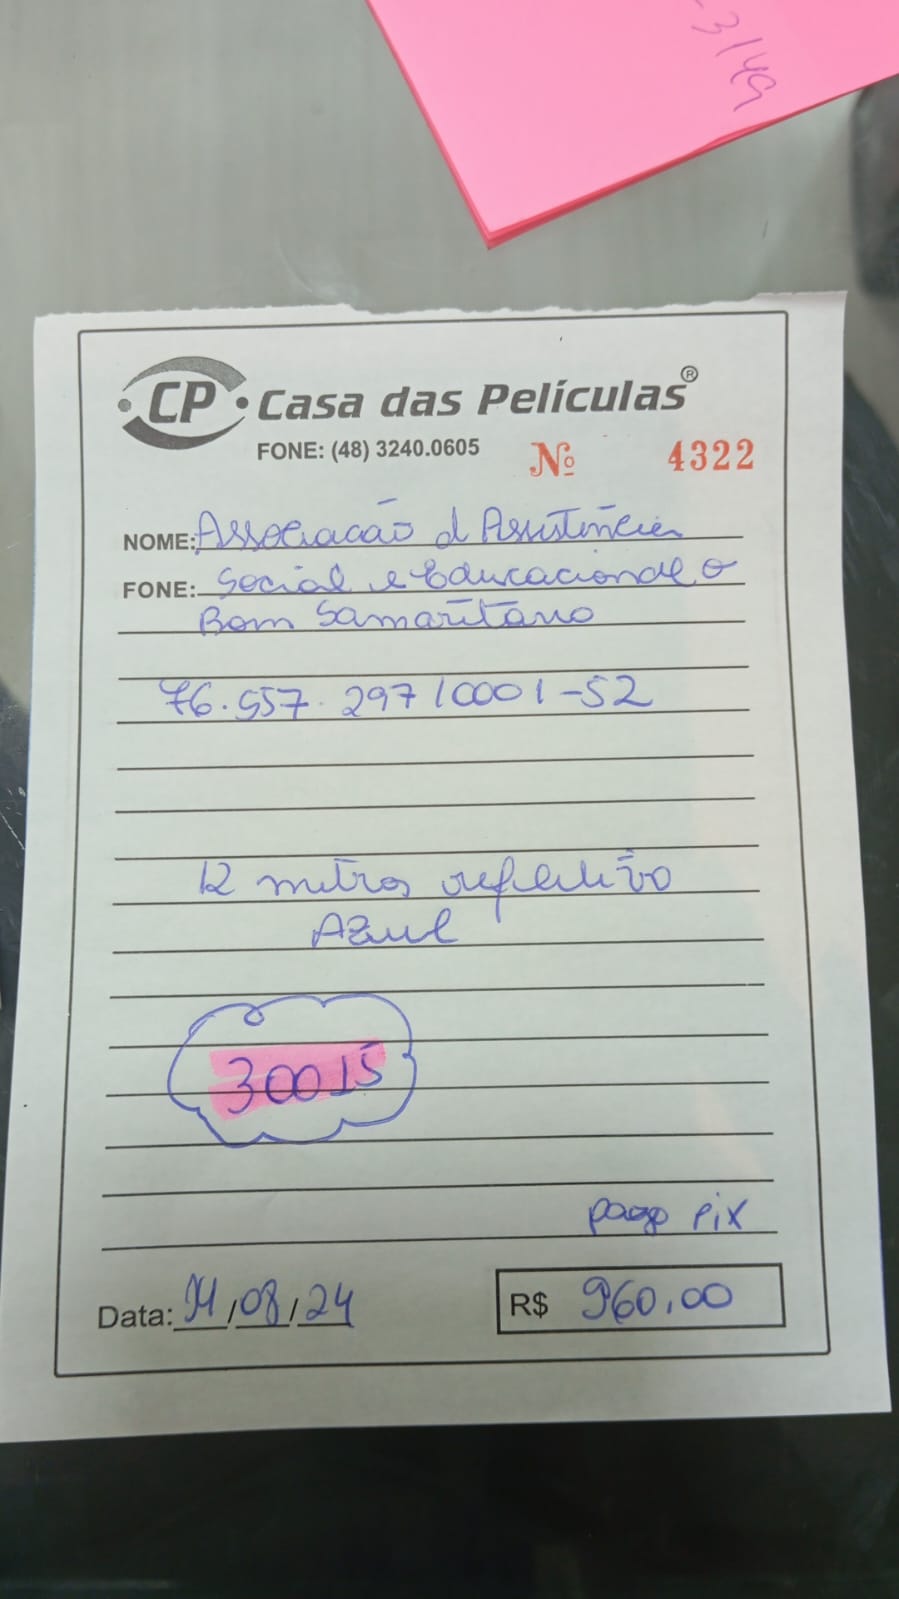 -3149
CP
Casa das Películas®
FONE: (48) 3240.0605
Nº 4322
NOME: Associação d Assistência
FONE: Social e Educacional o
Bom Samaritano
76.557.297/0001-52
12 metros refletivo
Azul
30015
pago pix
Data: /08/24
R$ 960,00